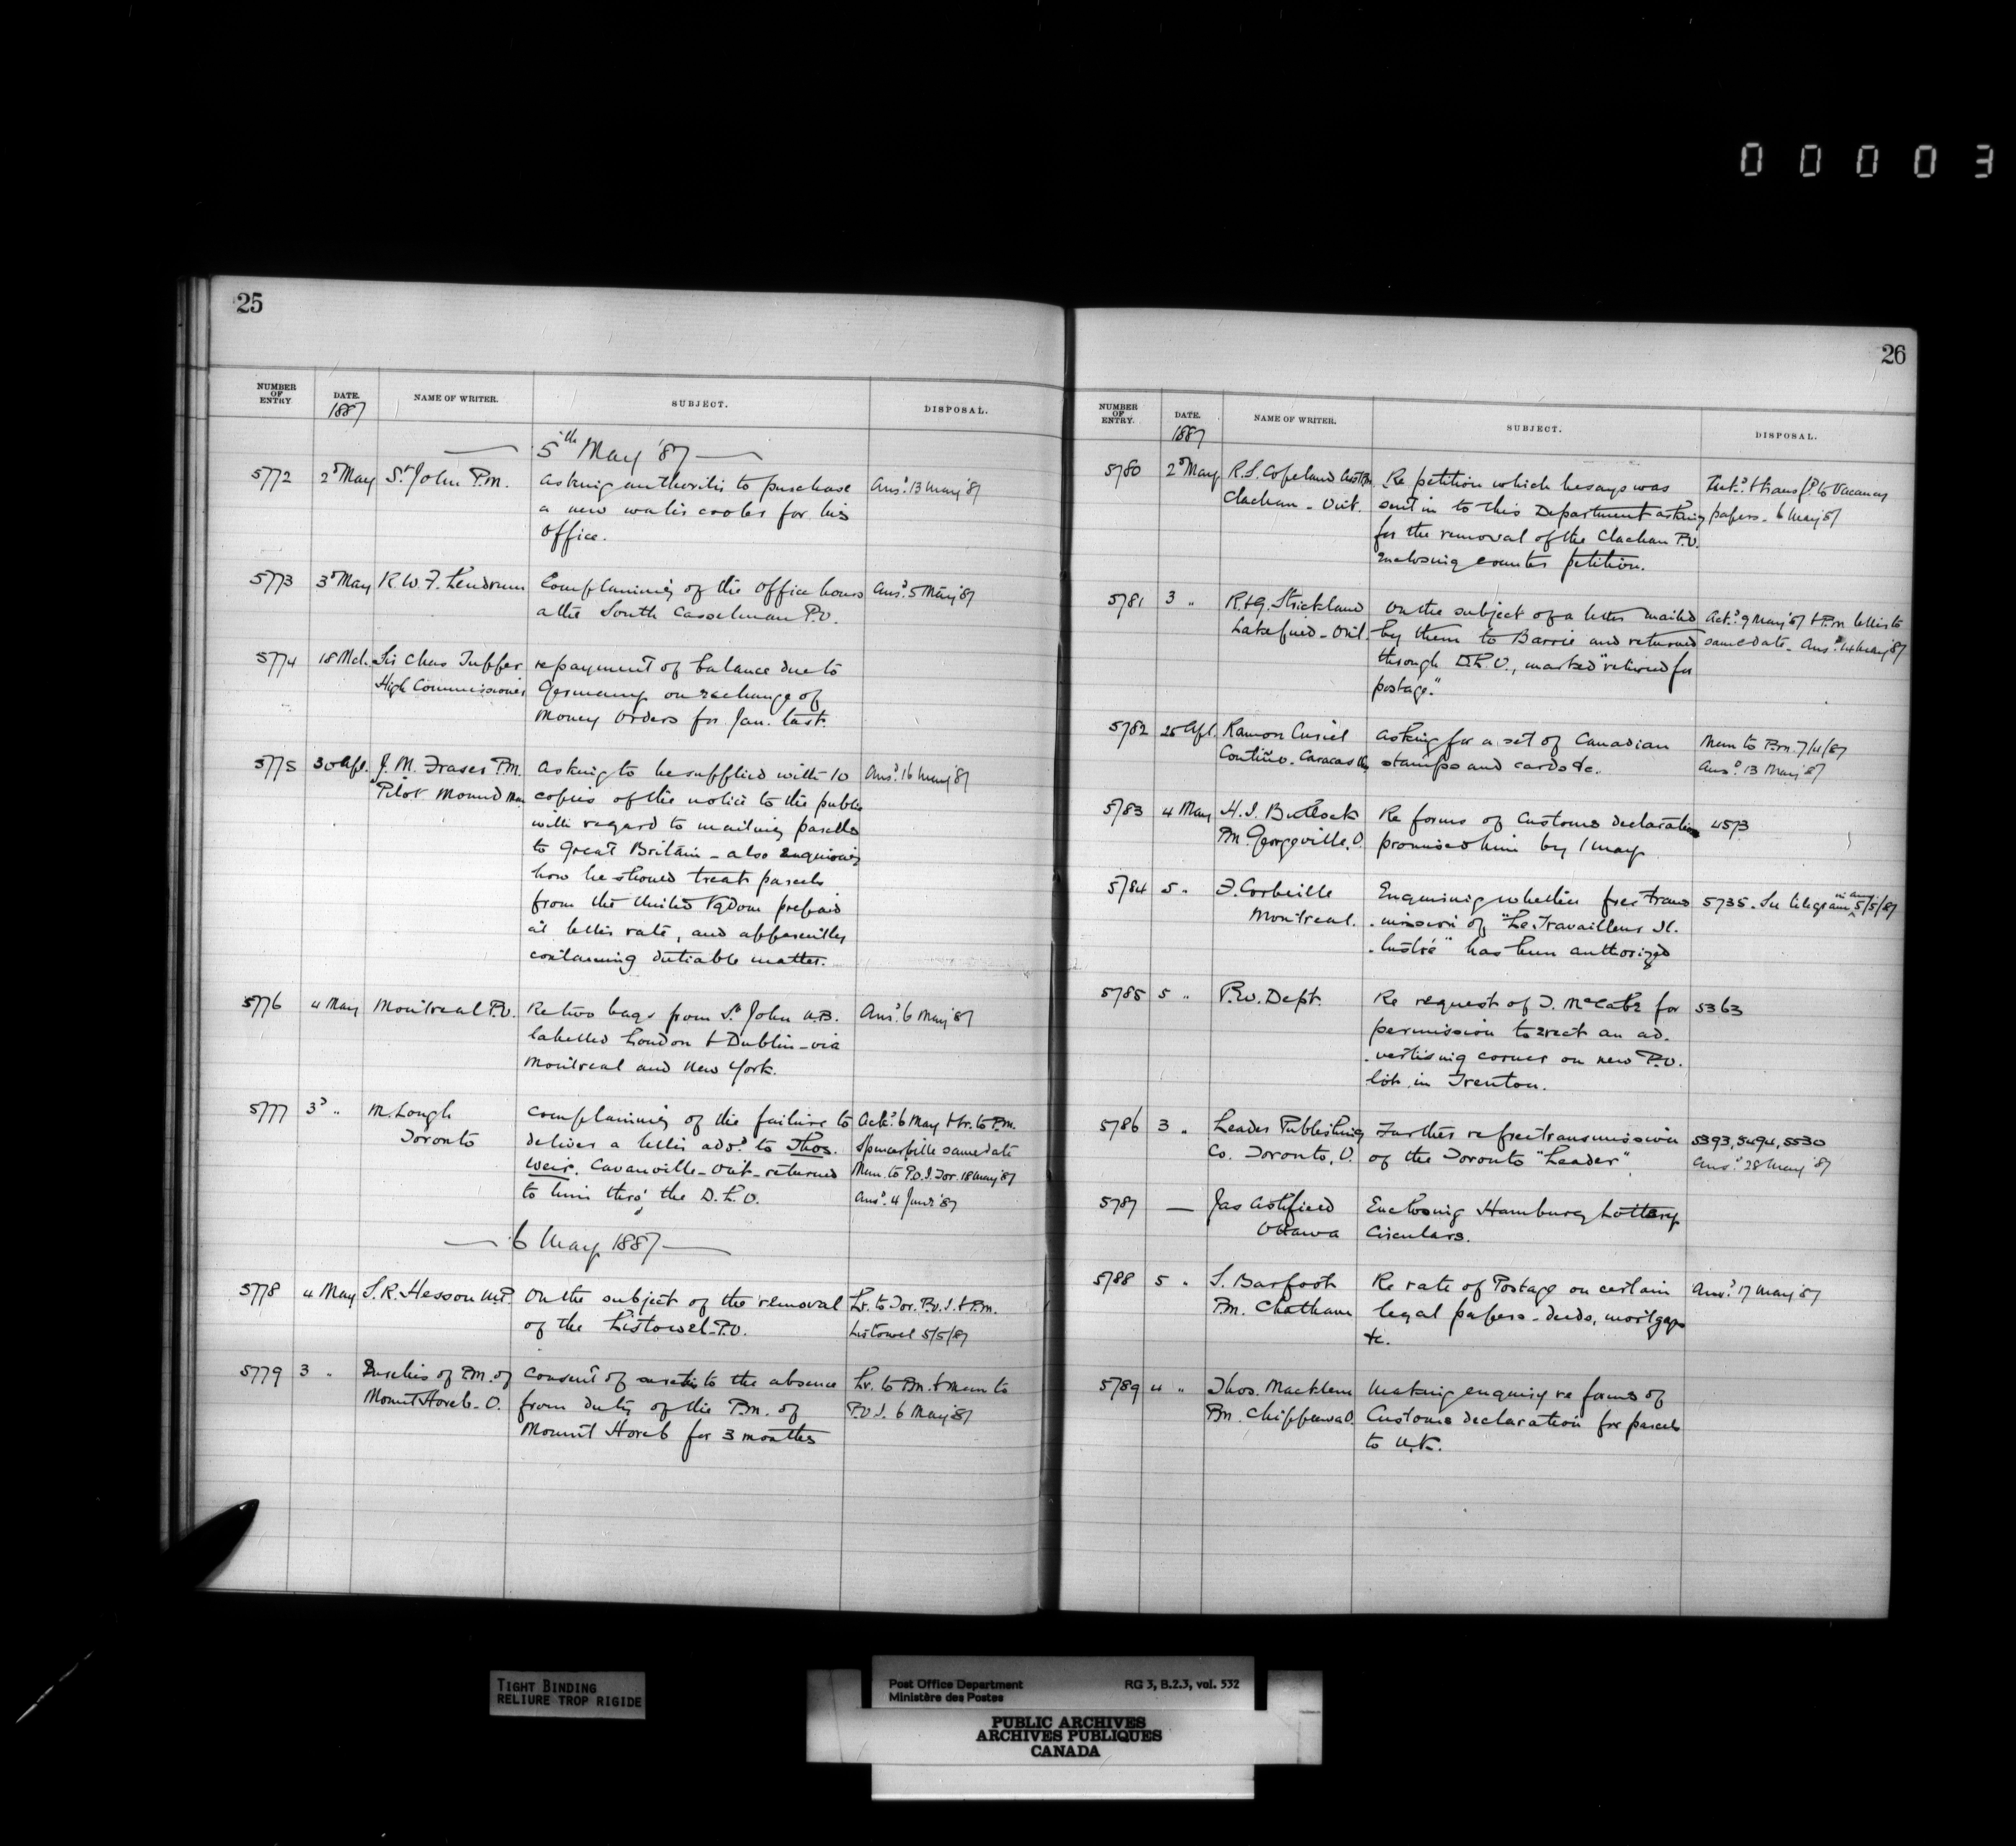 00003
25
NUMBER OF ENTRY
DATE. 1887
NAME OF WRITER.
SUBJECT.
DISPOSAL.
5th May '87
5772 2d May St John P.M. asking authority to purchase Ansd. 13 May '87
a new water cooler for his
office.
5773 3d May R. W. F. Lendrum Complaining of the office hours Ansd. 5 May '87
at the South Casselman P.O.
5774 18 Mch. Sir Chas Tupper repayment of balance due to
High Commissioner Germany on exchange of
Money Orders for Jan. last.
5775 30 Apl. J. M. Fraser P.M. asking to be supplied with 10 Ansd. 16 May '87
Pilot Mound Man copies of the notice to the public
with regard to mailing parcels
to Great Britain - also enquiring
how he should treat parcels
from the United Kgdom prepaid
at letter rate, and apparently
containing dutiable matter.
5776 4 May Montreal P.O. Re two bags from St John N.B. Ansd. 6 May '87
labelled London & Dublin - via
Montreal and New York.
5777 3d " M. Lough Complaining of the failure to Ackd. 6 May & lr. to P.M.
Toronto deliver a letter addd. to Thos. Spencerville same date
Weir. Cavanville - Ont - returned Mem. to P.O.I. Tor. 18 May '87
to him thro' the D.L.O. Ansd. 4 June '87
6 May 1887
5778 4 May S. R. Hesson M.P. On the subject of the removal Lr. to Tor. P.O.I. & P.M.
of the Listowel P.O. Listowel 5/5/87
5779 3 " Sureties of P.M. of Consent of sureties to the absence Lr. to P.M. & Mem to
Mount Horeb - O. from duty of the P.M. of P.O.I. 6 May '87
Mount Horeb for 3 months
26
NUMBER OF ENTRY.
DATE. 1887
NAME OF WRITER.
SUBJECT.
DISPOSAL.
5780 2d May R. S. Copeland Re petition which he says was & transfd. to Vacancy
Clachan - Ont. sent in to this Department asking papers - 6 May '87
for the removal of the Clachan P.O.
Enclosing counter petition.
5781 3 " R. & G. Strickland On the subject of a letter mailed Ackd. 9 May '87 & P.M. letter to
Lakefield - Ont. by them to Barrie and returned same date - Ansd. 14 May '87
through D.L.O., marked "returned for
postage."
5782 25 Apl. Ramon Curiel asking for a set of Canadian Mem to
Coutiño. Caracas stamps and cards &c. Ansd. 13 May '87
5783 4 May H. I. Bullock Re forms of Customs declaration 4573
P.M. Georgeville. promised him by 1 May
5784 5 " F. Corbeille Enquiring whether free trans 5735. See telegram in ansr 5/5/87
Montreal. -mission of "Le Travailleur Il.
-lustré" has been authorized
5785 5 " P.W. Dept. Re request of T. McCabe for 5363
permission to erect an ad.
-vertising corner on new P.O.
lot in Trenton.
5786 3 " Leader Publishing Further re free transmission 5393, 5494, 5530
Co. Toronto, O. of the Toronto "Leader". Ansd. 28 May '87
5787 — Jas Ashfield Enclosing Hamburg Lottery
Ottawa Circulars.
5788 5 " S. Barfoot Re rate of Postage on certain Ansd. 17 May '87
P.M. Chatham legal papers - deeds, mortgages
&c.
5789 4 " Thos. Macklem Making enquiry re forms of
P.M. Chippewa O. Customs declaration for parcels
to U.K.
TIGHT BINDING
RELIURE TROP RIGIDE
Post Office Department RG 3, B.2.3, vol. 532
Ministère des Postes
PUBLIC ARCHIVES
ARCHIVES PUBLIQUES
CANADA